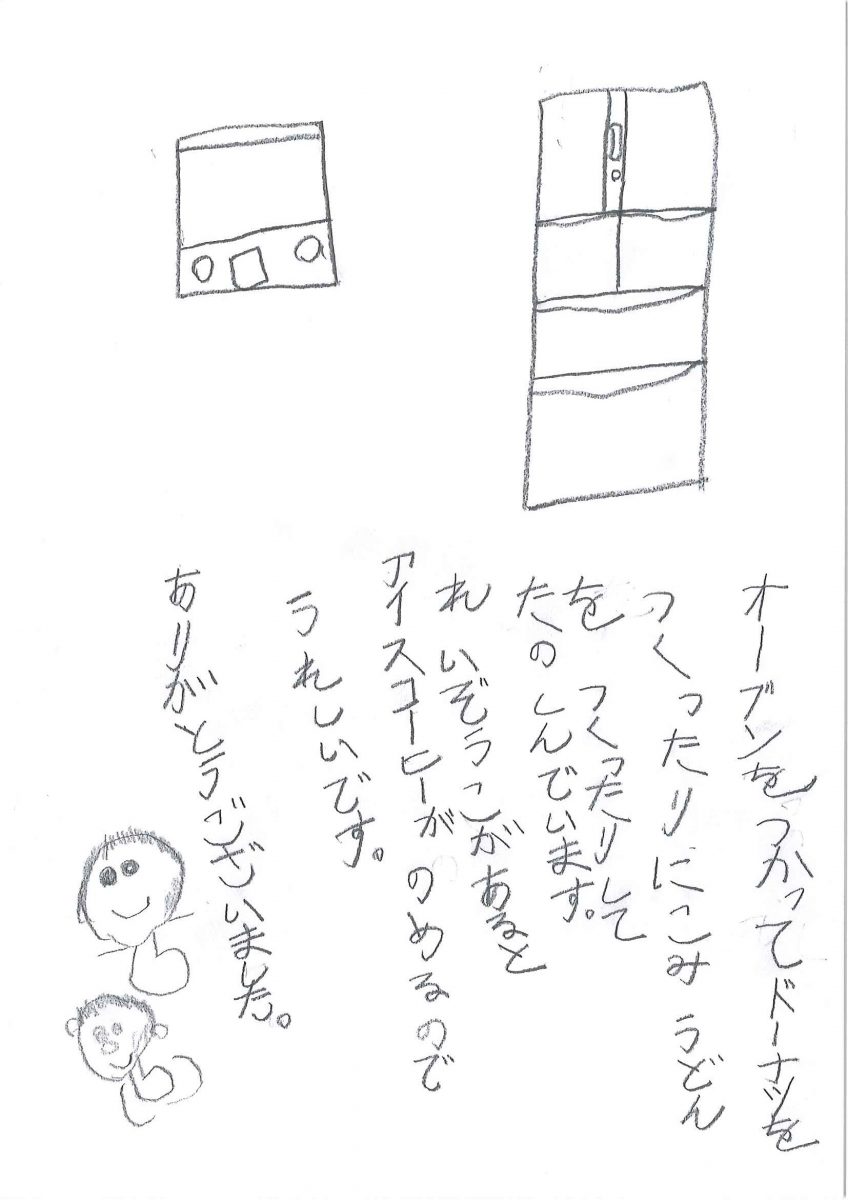 オーブンをつかってドーナツを
つくったりにこみうどん
をつくったりして
たのしんでいます。
れいぞうこがあると
アイスコーヒーがのめるので
うれしいです。
ありがとうございました。